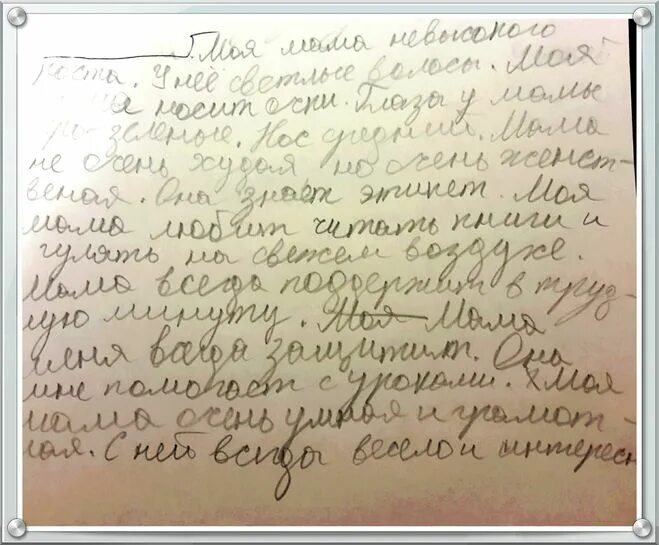 Моя мама невысокого
роста. У неё светлые волосы. Моя
ма носит очки. Глаза у мамы
ро-зеленые. Нос средний. Мама
не очень худая но очень женст-
веная. Она знает этикет. Моя
мама любит читать книги и
гулять на свежем воздухе.
Мама всегда поддержит в труд-
ную минуту. Моя Мама
меня всегда защитит. Она
мне помогает с уроками. Моя
мама очень умная и грамот-
ная. С ней всегда весело и интересн